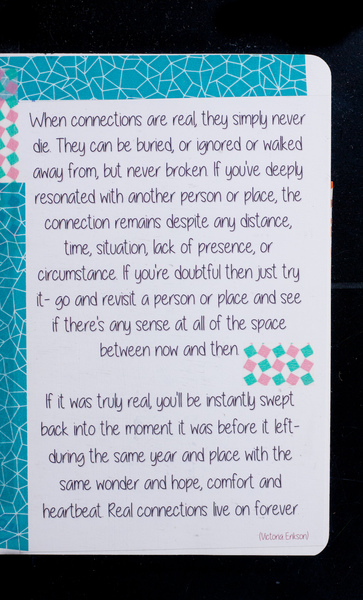 When connections are real, they simply never
die. They can be buried, or ignored or walked
away from, but never broken. If you've deeply
resonated with another person or place, the
connection remains despite any distance,
time, situation, lack of presence, or
circumstance. If you're doubtful then just try
it- go and revisit a person or place and see
if there's any sense at all of the space
between now and then.
If it was truly real, you'll be instantly swept
back into the moment it was before it left-
during the same year and place with the
same wonder and hope, comfort and
heartbeat. Real connections live on forever
(Victoria Erikson)